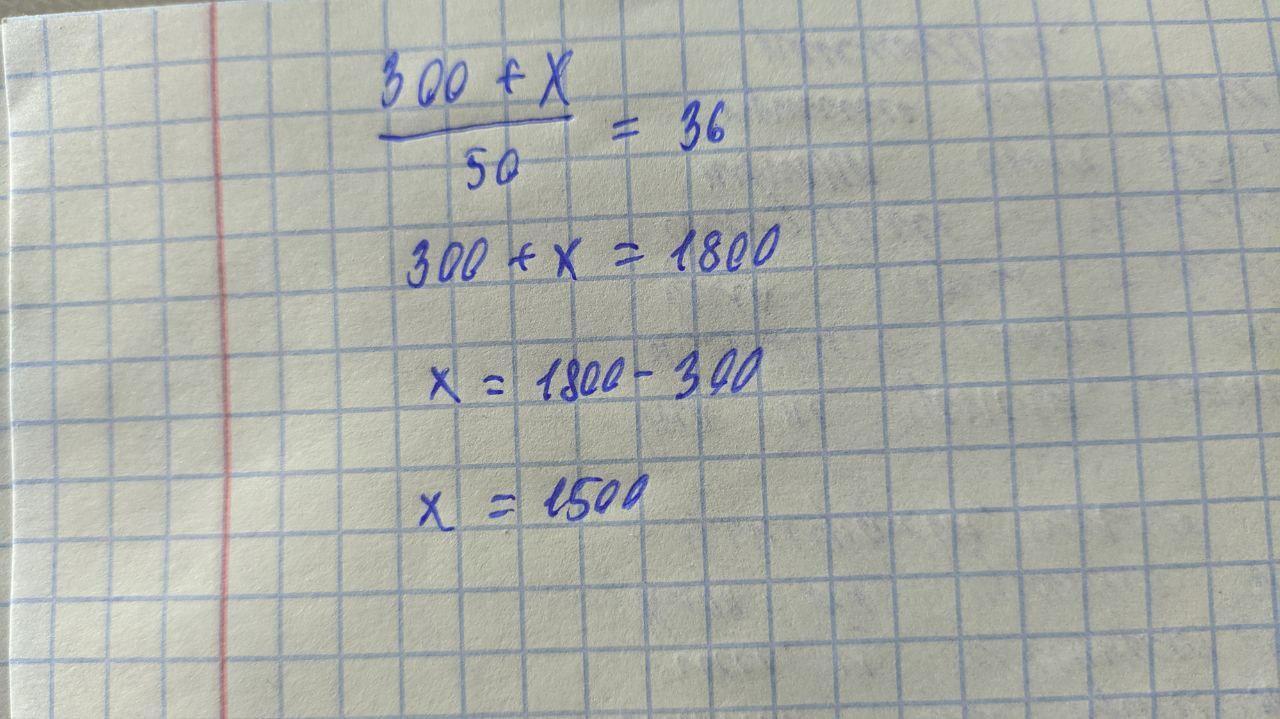 300 + x
/ 50 = 36
300 + x = 1800
x = 1800 - 300
x = 1500